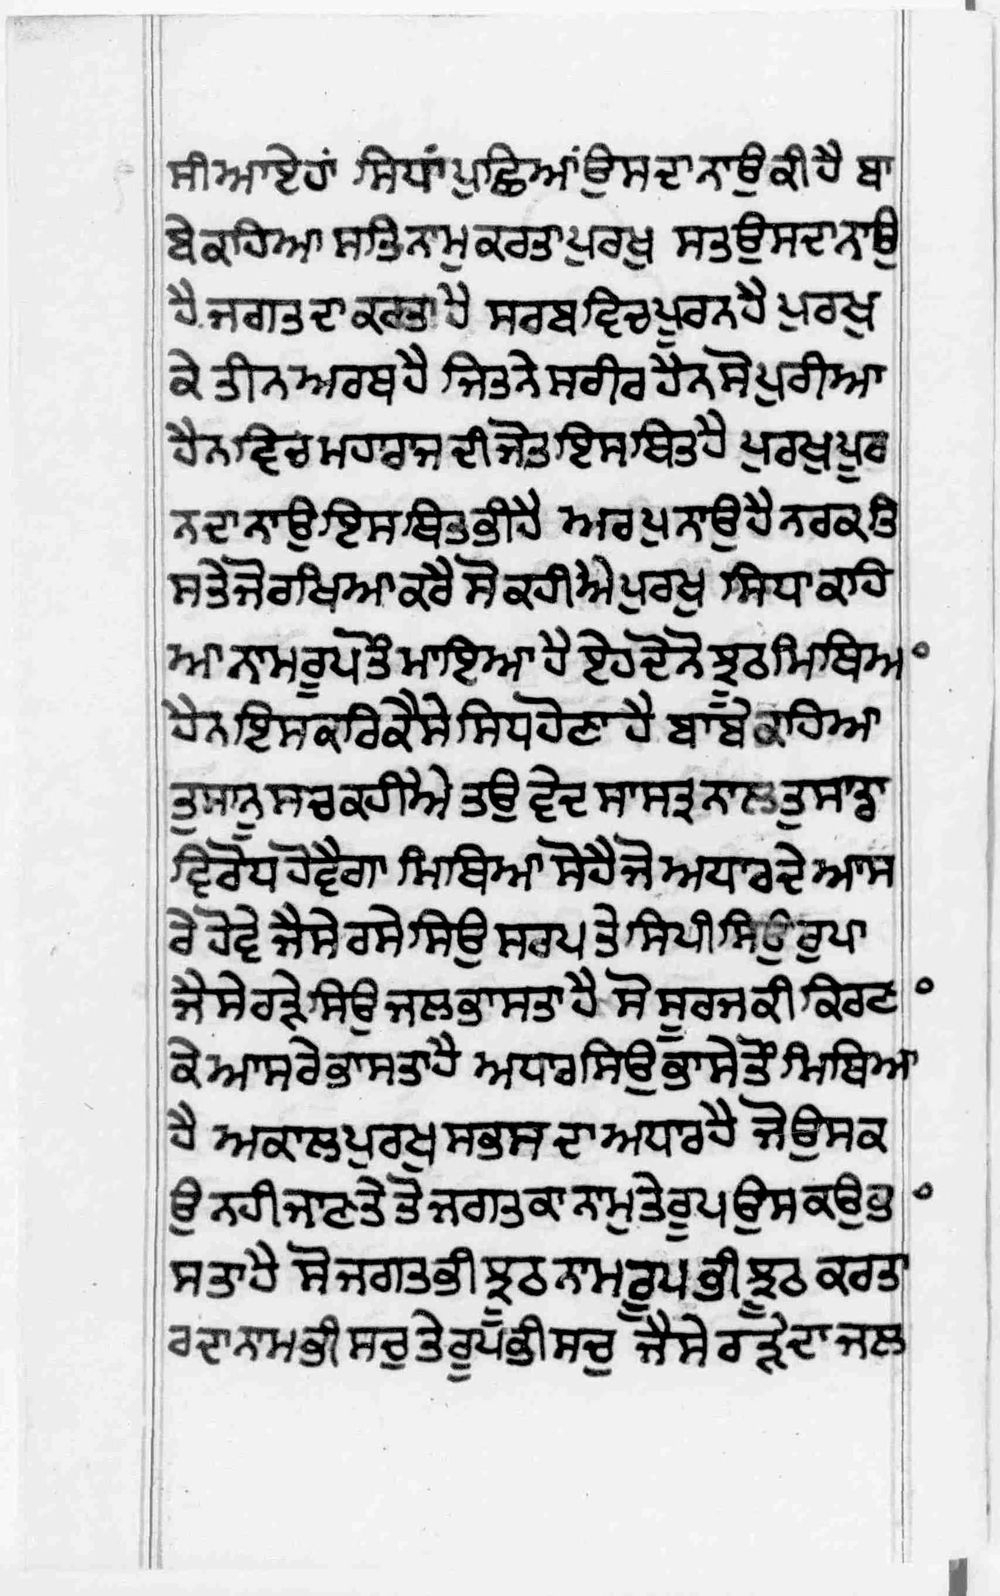 ਸੀਆਏਹਾਂ ਸਿਧਾਂਪੁਛਿਆਂਉਸਦਾਨਾਉਕੀਹੈ ਬਾ
ਬੇਕਾਹਿਆ ਸਤਿਨਾਮੁਕਰਤਾਪੁਰਖੁ ਸਤਉਸਦਾਨਾਉ
ਹੈ ਜਗਤਦਾਕਰਤਾਹੈ ਸਰਬਵਿਚਪੂਰਨਹੈ ਪੁਰਖੁ
ਕੇ ਤੀਨਅਰਥਹੈ ਜਿਤਨੇਸਰੀਰਹੈਨਸੋਪੁਰੀਆ
ਹੈਨਵਿਚਮਹਾਰਾਜਦੀਜੋਤਇਸਥਿਤਹੈ ਪੁਰਖੁਪੂਰ
ਨਦਾਨਾਉਇਸਥਿਤਭੀਹੈ ਅਰਪੁਨਾਉਹੈਨਰਕਤਿ
ਸਤੇਜੋਰਖਿਆਕਰੈਸੋਕਹੀਐਪੁਰਖੁ ਸਿਧਾਕਹਿ
ਆਨਾਮਰੂਪਤੌਮਾਇਆਹੈਏਹਦੋਨੋਝੂਠਮਿਥਿਅ°
ਹੈਨਇਸਕਰਿਕੈਸੇਸਿਧਹੋਣਾਹੈ ਬਾਬੇਕਾਹਿਆ
ਤੁਸਾਨੂਸਚਕਹੀਐਤਉਵੇਦਸਾਸਤ੍ਰਨਾਲਤੁਸਾਡਾ
ਵਿਰੋਧਹੋਵੈਗਾ ਮਿਥਿਆਸੋਹੈਜੋਅਧਾਰਦੇਆਸ
ਰੇਹੋਵੇ ਜੈਸੇਰਸੇਸਿਉਸਰਪਤੇਸਿਪੀਸਿਉਰੁਪਾ
ਜੈਸੇਰੜ੍ਹੇਸਿਉਜਲਭਾਸਤਾਹੈਸੋਸੂਰਜਕੀਕਿਰਣ°
ਕੇਆਸਰੇਭਾਸਤਾਹੈ ਅਧਾਰਸਿਉਭਾਸੇਤੌਮਿਥਿਆ
ਹੈ ਅਕਾਲਪੁਰਖੁਸਭਸਦਾਅਧਾਰਹੈ ਜੋਉਸਕ
ਉਨਹੀਜਾਣਤੇਤੋਜਗਤਕਾਨਾਮੁਤੇਰੂਪਉਸਕਉਭ°
ਸਤਾਹੈ ਸੋਜਗਤਭੀਝੂਠਨਾਮਰੂਪਭੀਝੂਠਕਰਤਾ
ਰਦਾਨਾਮਭੀਸਚੁਤੇਰੂਪਭੀਸਚੁ ਜੈਸੇਰੜ੍ਹੇਦਾਜਲ